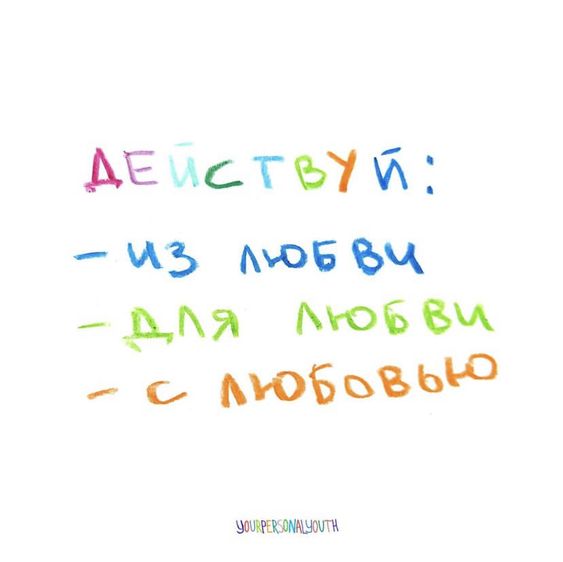 ДЕЙСТВУЙ:
- ИЗ ЛЮБВИ
- ДЛЯ ЛЮБВИ
- С ЛЮБОВЬЮ
YOURPERSONALYOUTH